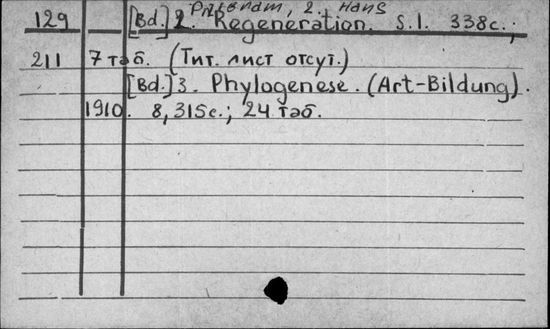 Hans
129 [Bd.] 2. Regeneration. S.l. 338с.;
211 7 таб. (Тит. лист отсут.)
[Bd.] 3. Phylogenese. (Art-Bildung).
1910. 8, 315с.; 24 таб.